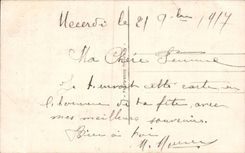 Mecerdi le 21 9bre 1917
Ma Chère
Je t'envoit cette carte en
l'honneur de ta fête, avec
mes meilleurs souvenirs.
Bien à toi